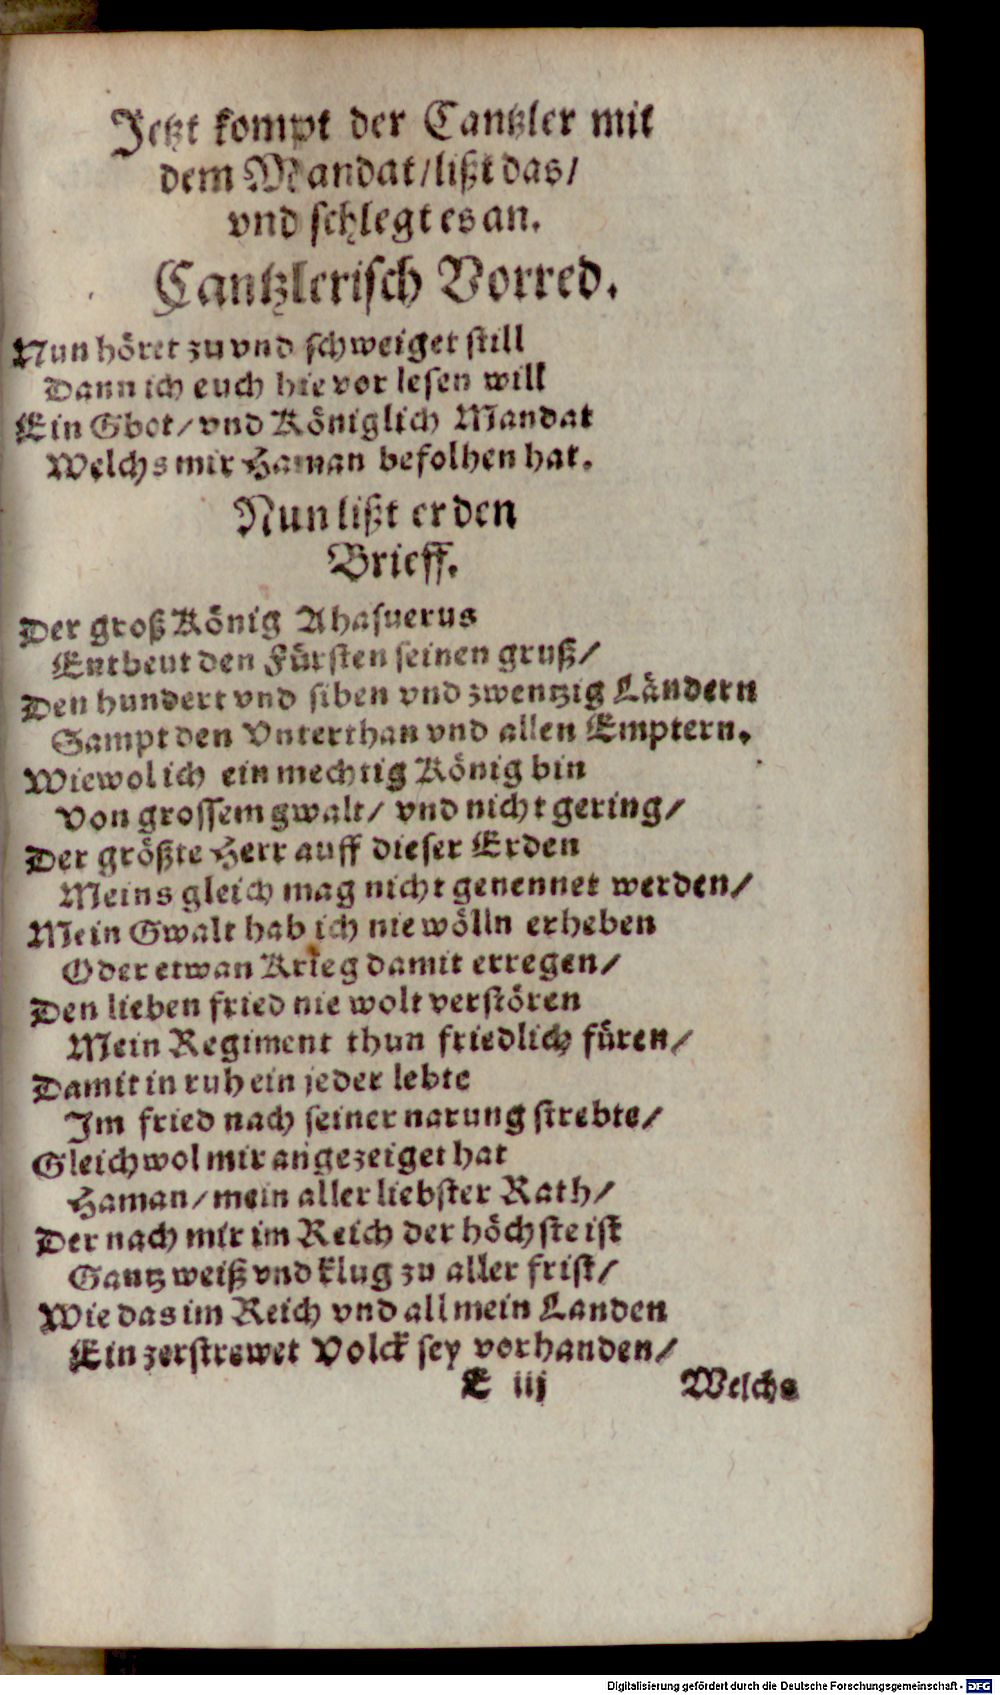 Jetzt kompt der Cantzler mit
dem Mandat/lißt das/
vnd schlegt es an.
Cantzlerisch Vorred.
Nun höret zu vnd schweiget still
Dann ich euch hie vor lesen will
Ein Gbot/ vnd Königlich Mandat
Welchs mir Haman befolhen hat.
Nun lißt er den
Brieff.
Der groß König Ahasuerus
Entbeut den Fürsten seinen gruß/
Den hundert vnd siben vnd zwentzig Ländern
Sampt den Vnterthan vnd allen Emptern.
Wiewol ich ein mechtig König bin
Von grossem gwalt/ vnd nicht gering/
Der größte Herr auff dieser Erden
Meins gleich mag nicht genennet werden/
Mein Gwalt hab ich nie wölln erheben
Oder etwan Krieg damit erregen/
Den lieben fried nie wolt verstören
Mein Regiment thun friedlich füren/
Damit in ruh ein jeder lebte
Im fried nach seiner narung strebte/
Gleichwol mir angezeiget hat
Haman/mein aller liebster Rath/
Der nach mir im Reich der höchste ist
Gantz weiß vnd klug zu aller frist/
Wie das im Reich vnd all mein Landen
Ein zerstrewet Volck sey vorhanden/
E iij Welchs
Digitalisierung gefördert durch die Deutsche Forschungsgemeinschaft - DFG